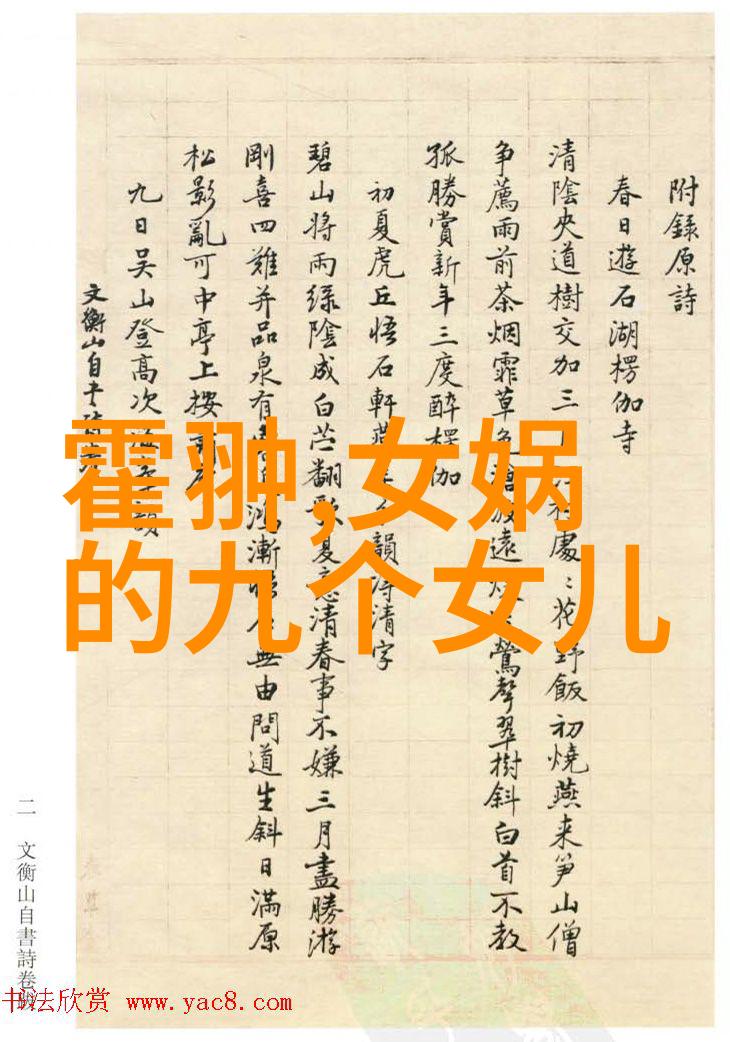 附錄原詩
春日遊石湖楞伽寺
清陰夾道樹交加三村處〻花野飯初燒燕来笋山僧
争薦雨前茶烟霏草色放遠鶯聲翠樹斜白首不教
孤勝賞新年三度醉楞伽
初夏虎丘悟石軒韻得清字
碧山將雨綠陰成白苎翻歌夏清春事不嫌三月盡勝游
剛喜四難并品泉有鴻漸無由問道生斜日滿原
松影亂可中亭上按
九日吴山登高次韻
文衡山自書詩
霍翀,女娲
的九个女儿
二 文衡山自書詩卷跋
书法欣赏 www.yac8.com